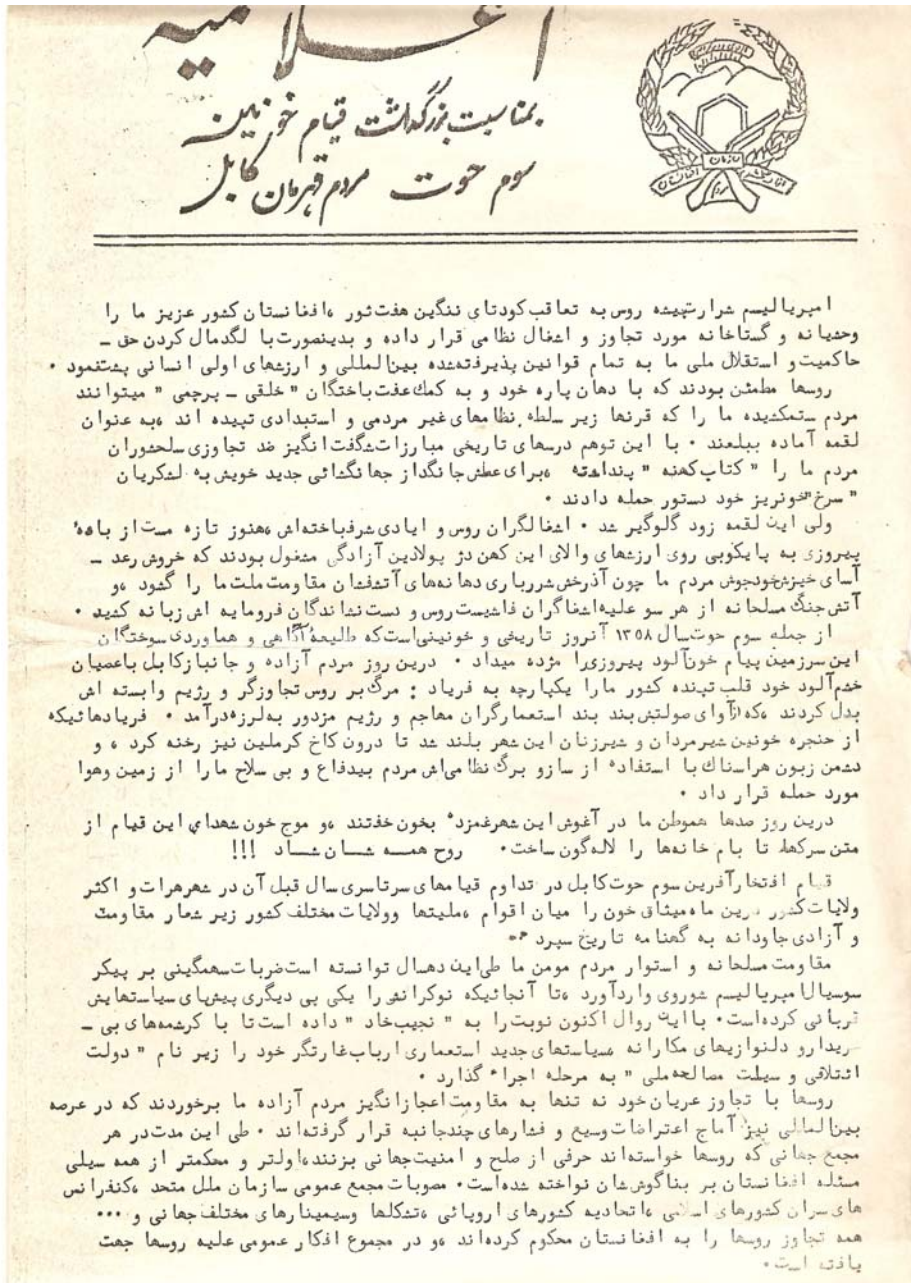 اعلامیه
بمناسبت بزرگداشت قیام خونین
سوم حوت مردم قهرمان کابل
سازمان
مردم
افغانستان
امپریالیسم شرارتپیشه روس به تعاقب کودتای ننگین هفت ثور ، افغانستان کشور عزیز ما را
وحشیانه و گستاخانه مورد تجاوز و اشغال نظامی قرار داده و بدینصورت با لگدمال کردن حق ـ
حاکمیت و استقلال ملی ما به تمام قوانین پذیرفته‌شده بین‌المللی و ارزشهای اولی انسانی پشت‌نمود .
روسها مطمئن بودند که با دهان پاره خود و به کمک عفت باختگان " خلقی ـ پرچمی " میتوانند
مردم ستمکشیده ما را که قرنها زیر سلطه نظامهای غیر مردمی و استبدادی تپیده اند ، به عنوان
لقمه آماده ببلعند . با این توهم درسهای تاریخی مبارزات شگفت انگیز ضد تجاوزی سلحشوران
مردم ما را " کتاب کهنه " پنداشته ، برای عطش جانگداز جهانگشائی جدید خویش به لشکریان
" سرخ " خونریز خود دستور حمله دادند .
ولی این لقمه زود گلوگیر شد . اشغالگران روس و ایادی شرفباخته‌اش ، هنوز تازه مست از بادهٔ
پیروزی به پایکوبی روی ارزشهای والای این کهن دژ پولادین آزادگی مشغول بودند که خروش رعد ـ
آسای خیزش خودجوش مردم ما چون آذرخش شررباری دهانه‌های آتشفشان مقاومت ملت ما را گشود ، و
آتش جنگ مسلحانه از هر سو علیه اشغاگران فاشیست روس و دست نشاندگان فرومایه اش زبانه کشید .
از جمله سوم حوت سال ۱۳۵۸ آنروز تاریخی و خونینی‌است که طلیعهٔ آگاهی و هماوردی سوختگان
این سرزمین پیام خون‌آلود پیروزی را مژده میداد . درین روز مردم آزاده و جانباز کابل با عصیان
خشم‌آلود خود قلب تپنده کشور ما را یکپارچه به فریاد : مرگ بر روس تجاوزگر و رژیم وابسته اش
بدل کردند ، که از آوای صولتش بند بند استعمارگران مهاجم و رژیم مزدور به‌لرزه درآمد . فریادهائیکه
از حنجره خونین شیرمردان و شیرزنان این شهر بلند شد تا درون کاخ کرملین نیز رخنه کرد ، و
دشمن زبون هراسناک با استفاده از سازو برگ نظامی‌اش مردم بیدفاع و بی سلاح ما را از زمین وهوا
مورد حمله قرار داد .
درین روز صدها هموطن ما در آغوش این شهرغمزده بخون خفتند ، و موج خون شهدای این قیام از
متن سرکها تا بام خانه‌ها را لاله‌گون ساخت . روح همه شان شاد !!!
قیام افتخارآفرین سوم حوت کابل در تداوم قیامهای سرتاسری سال قبل آن در شهرهرات و اکثر
ولایات کشور درین ماه میثاق خون را میان اقوام ، ملیتها وولایات مختلف کشور زیر شعار مقاومت
و آزادی جاودانه به گهنامه تاریخ سپرد .
مقاومت مسلحانه و استوار مردم مومن ما طی‌این دهسال توانسته است ضربات سهمگینی بر پیکر
سوسیال امپریالیسم شوروی واردآورد ، تا آنجائیکه نوکرانش را یکی پی دیگری پیش‌پای سیاستهایش
قربانی کرده‌است . با این روال اکنون نوبت را به " نجیب‌خاد " داده است تا با کرشمه‌های بی ـ
خریدار و دلنوازیهای مکارانه سیاستهای جدید استعماری ارباب غارتگر خود را زیر نام " دولت
ائتلافی و سیاست مصالحه ملی " به مرحله اجراء گذارد .
روسها با تجاوز عریان خود نه تنها به مقاومت اعجاز انگیز مردم آزاده ما برخوردند که در عرصه
بین‌المللی نیز آماج اعتراضات وسیع و فشارهای چندجانبه قرار گرفته‌اند . طی این مدت در هر
مجمع جهانی که روسها خواسته‌اند حرفی از صلح و امنیت جهانی بزنند ، اولتر و محکمتر از همه سیلی
مسئله افغانستان بر بناگوششان نواخته شده‌است . مصوبات مجمع عمومی سازمان ملل متحد ، کنفرانس
های سران کشورهای اسلامی ، اتحادیه کشورهای اروپائی ، تشکلها وسیمینارهای مختلف جهانی و ...
همه تجاوز روسها را به افغانستان محکوم کرده‌اند ، و در مجموع افکار عمومی علیه روسها جهت
یافته است .